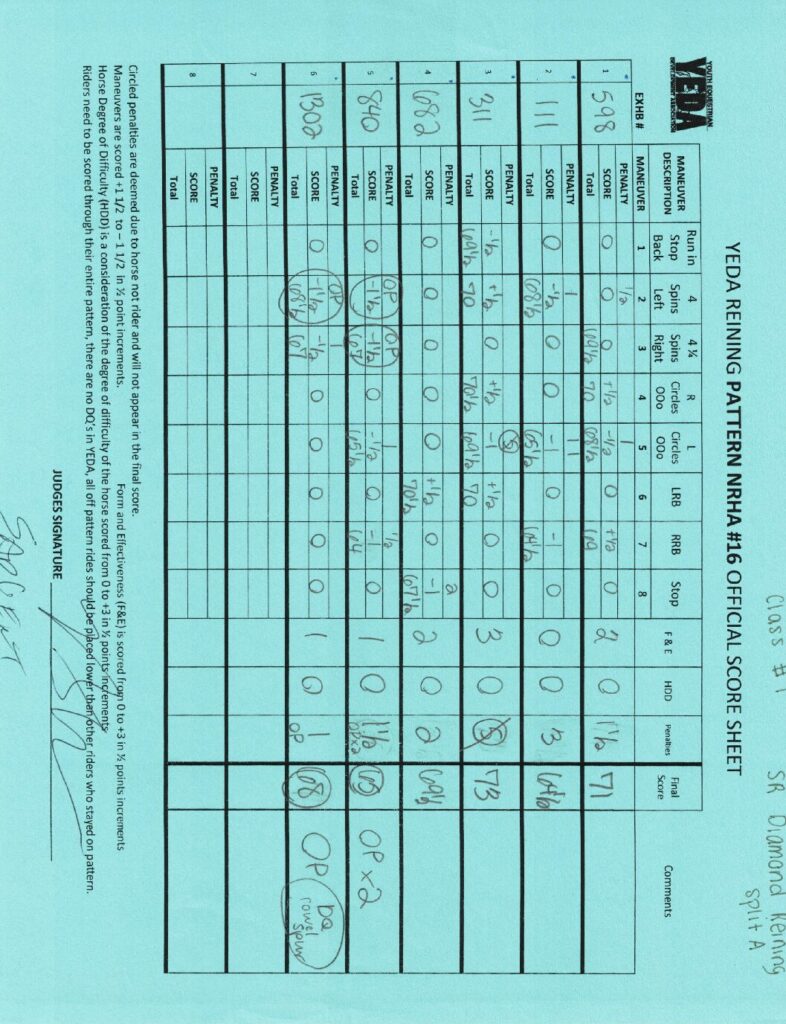 Class #1 SR Diamond Reining
Split A
YOUTH EQUESTRIAN
YEDA
DEVELOPMENT ASSOCIATION
YEDA REINING PATTERN NRHA #16 OFFICIAL SCORE SHEET
MANEUVER DESCRIPTION Run in Stop Back 4 Spins Left 4 ¼ Spins Right R Circles OOo L Circles OOo LRB RRB Stop F & E HDD Penalties Final Score Comments
EXHB # MANEUVER 1 2 3 4 5 6 7 8
1 598 PENALTY 1/2 1
SCORE 0 0 0 +1/2 -1/2 0 +1/2 0 2 0 1½ 71
Total 69½ 70 68½ 69
2 111 PENALTY 1 1 1
SCORE 0 -1/2 0 0 -1 0 -1 0 0 0 3 64½
Total 68½ 65½ 64½
3 311 PENALTY 5
SCORE -1/2 +1/2 0 +1/2 -1 +1/2 0 0 3 0 5 73
Total 69½ 70 70½ 69½ 70
4 682 PENALTY 2
SCORE 0 0 0 0 0 +1/2 0 -1 2 0 2 69½
Total 70½ 67½
5 840 PENALTY OP OP 1 1/2
SCORE 0 -1½ -1½ 0 -1/2 0 -1 0 1 0 1½ OPx2 65 OP x 2
Total 67 65½ 64
6 1302 PENALTY OP 1
SCORE 0 -1½ -1/2 0 0 0 0 0 1 0 1 OP 68 OP DQ rowel spur
Total 68½ 67
7 PENALTY
SCORE
Total
8 PENALTY
SCORE
Total
Circled penalties are deemed due to horse not rider and will not appear in the final score.
Maneuvers are scored +1 1/2 to – 1 1/2 in ½ point increments. Form and Effectiveness (F&E) is scored from 0 to +3 in ½ points increments
Horse Degree of Difficulty (HDD) is a consideration of the degree of difficulty of the horse scored from 0 to +3 in ½ points increments
Riders need to be scored through their entire pattern, there are no DQ's in YEDA, all off pattern rides should be placed lower than other riders who stayed on pattern.
JUDGES SIGNATURE
SARGENT